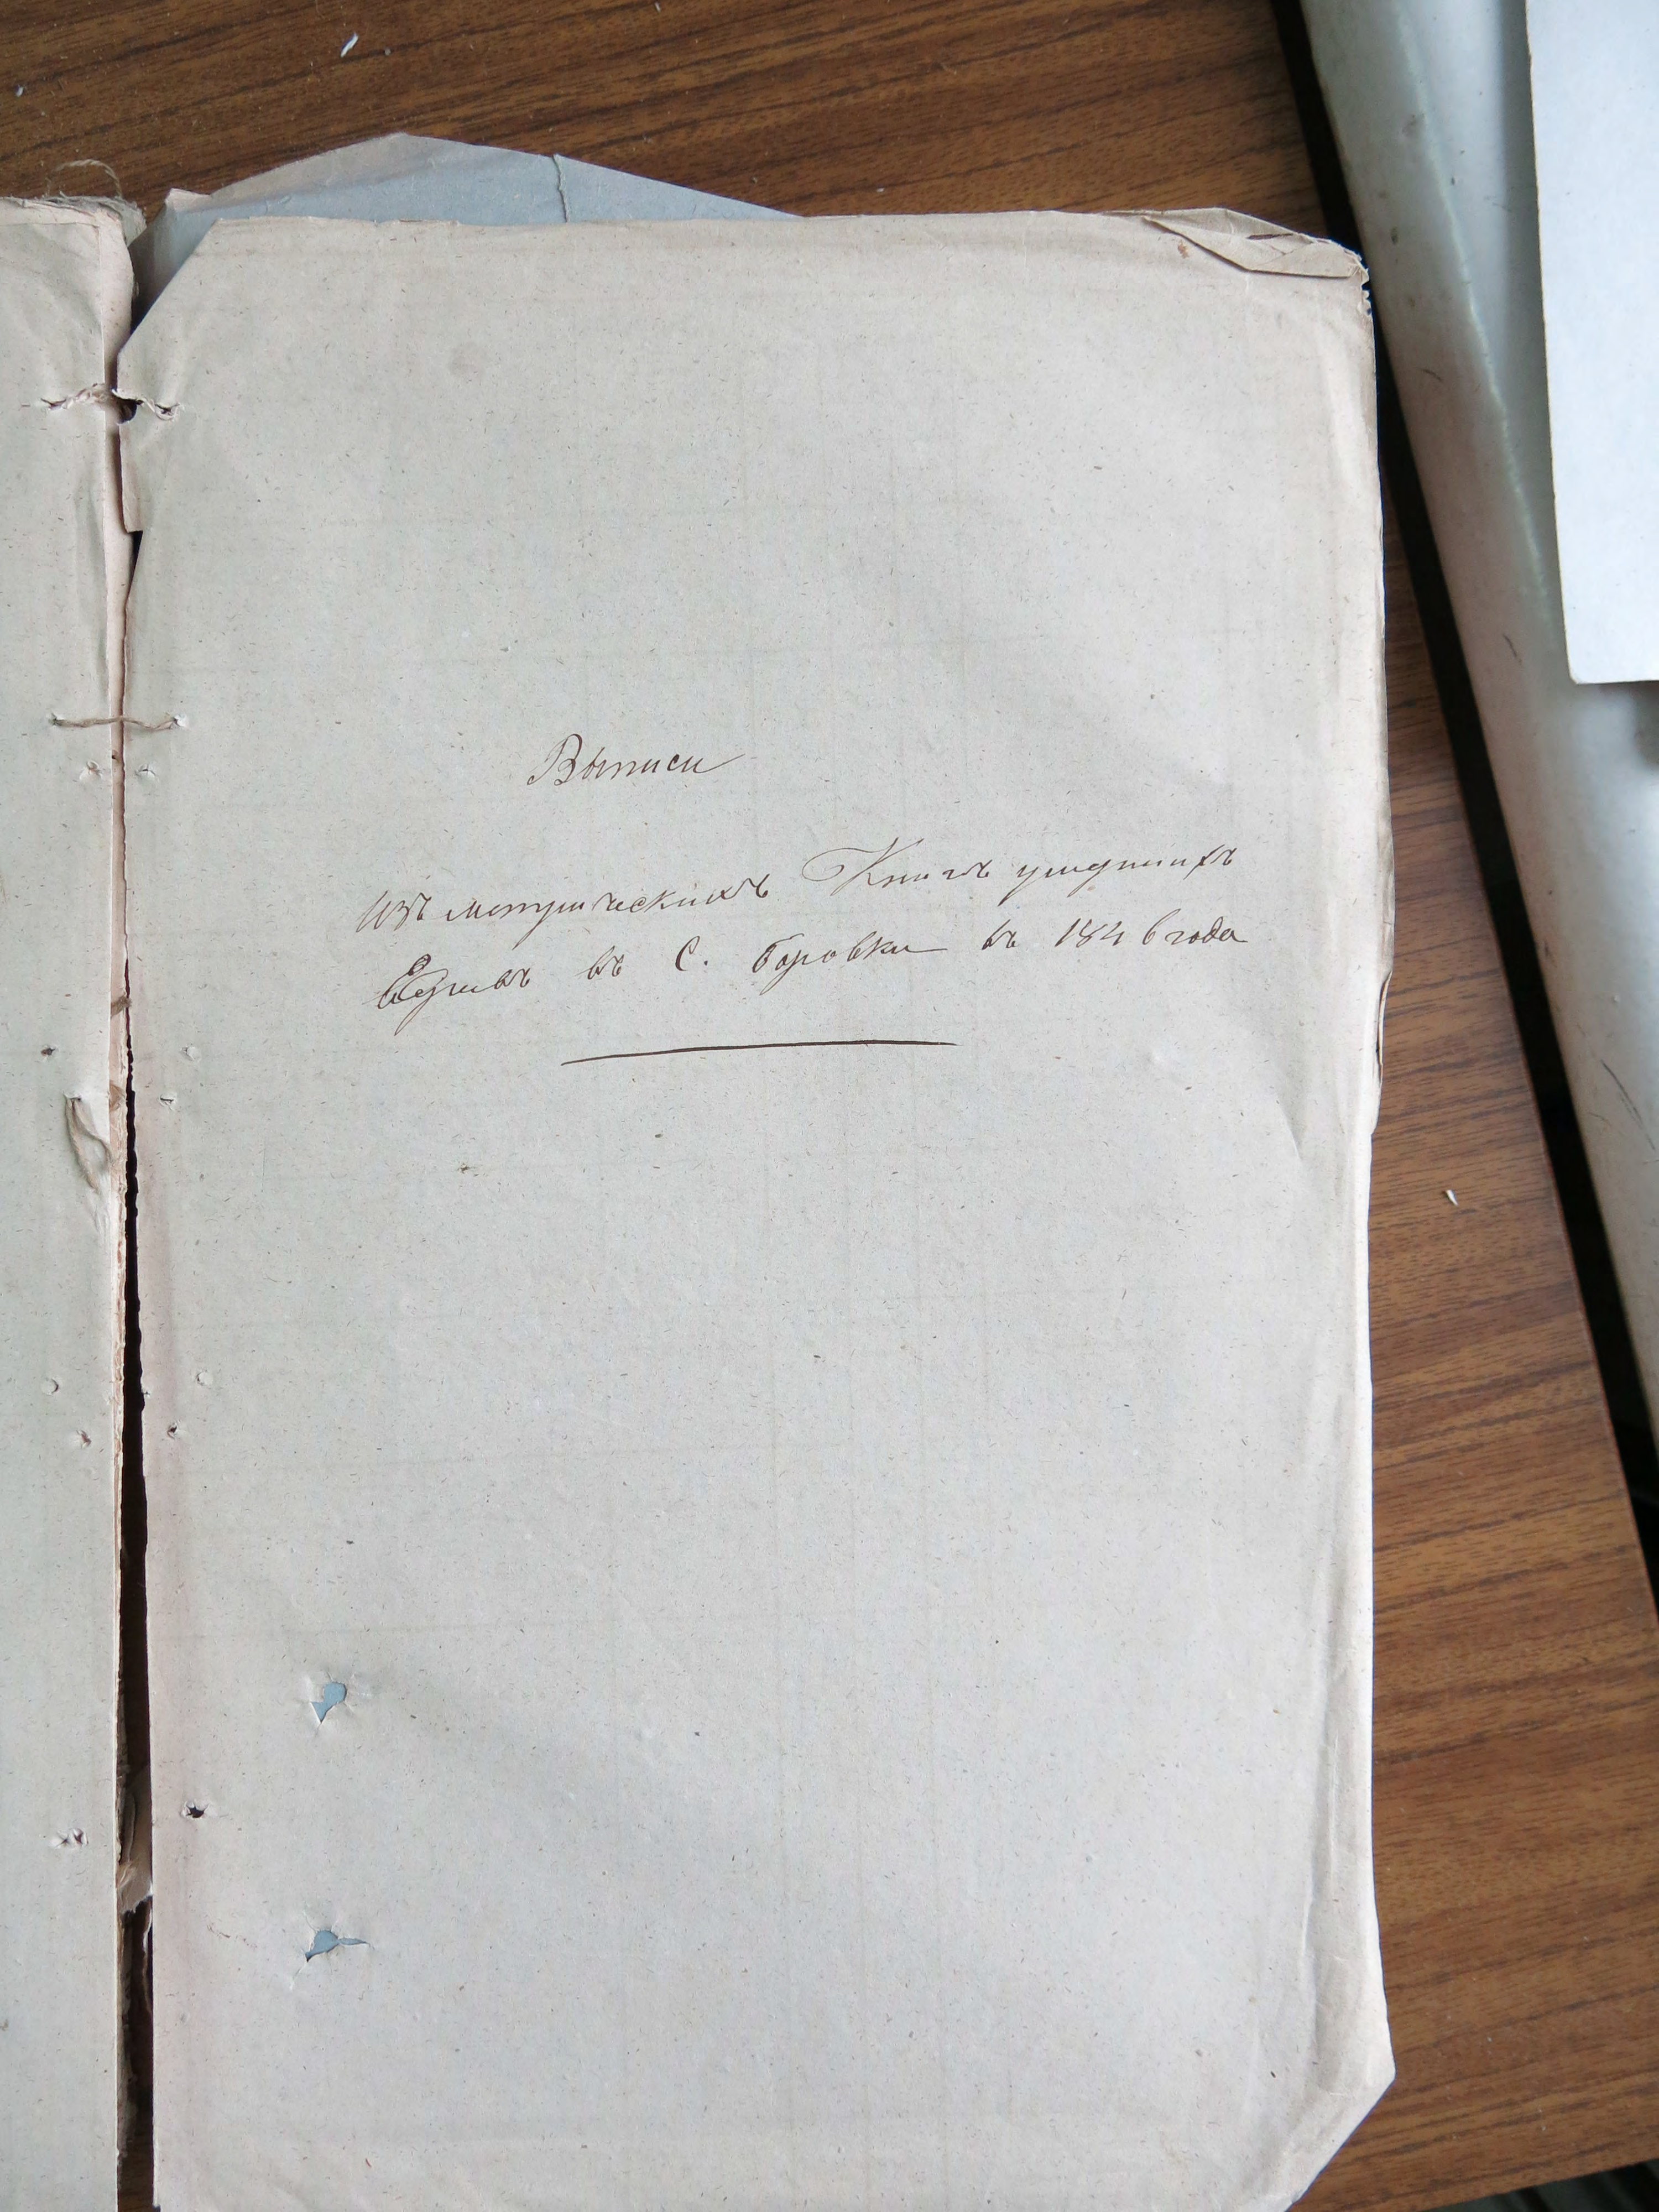 Выписи
изъ метрическихъ Книгъ умершихъ
въ С. Боровки въ 1846 года